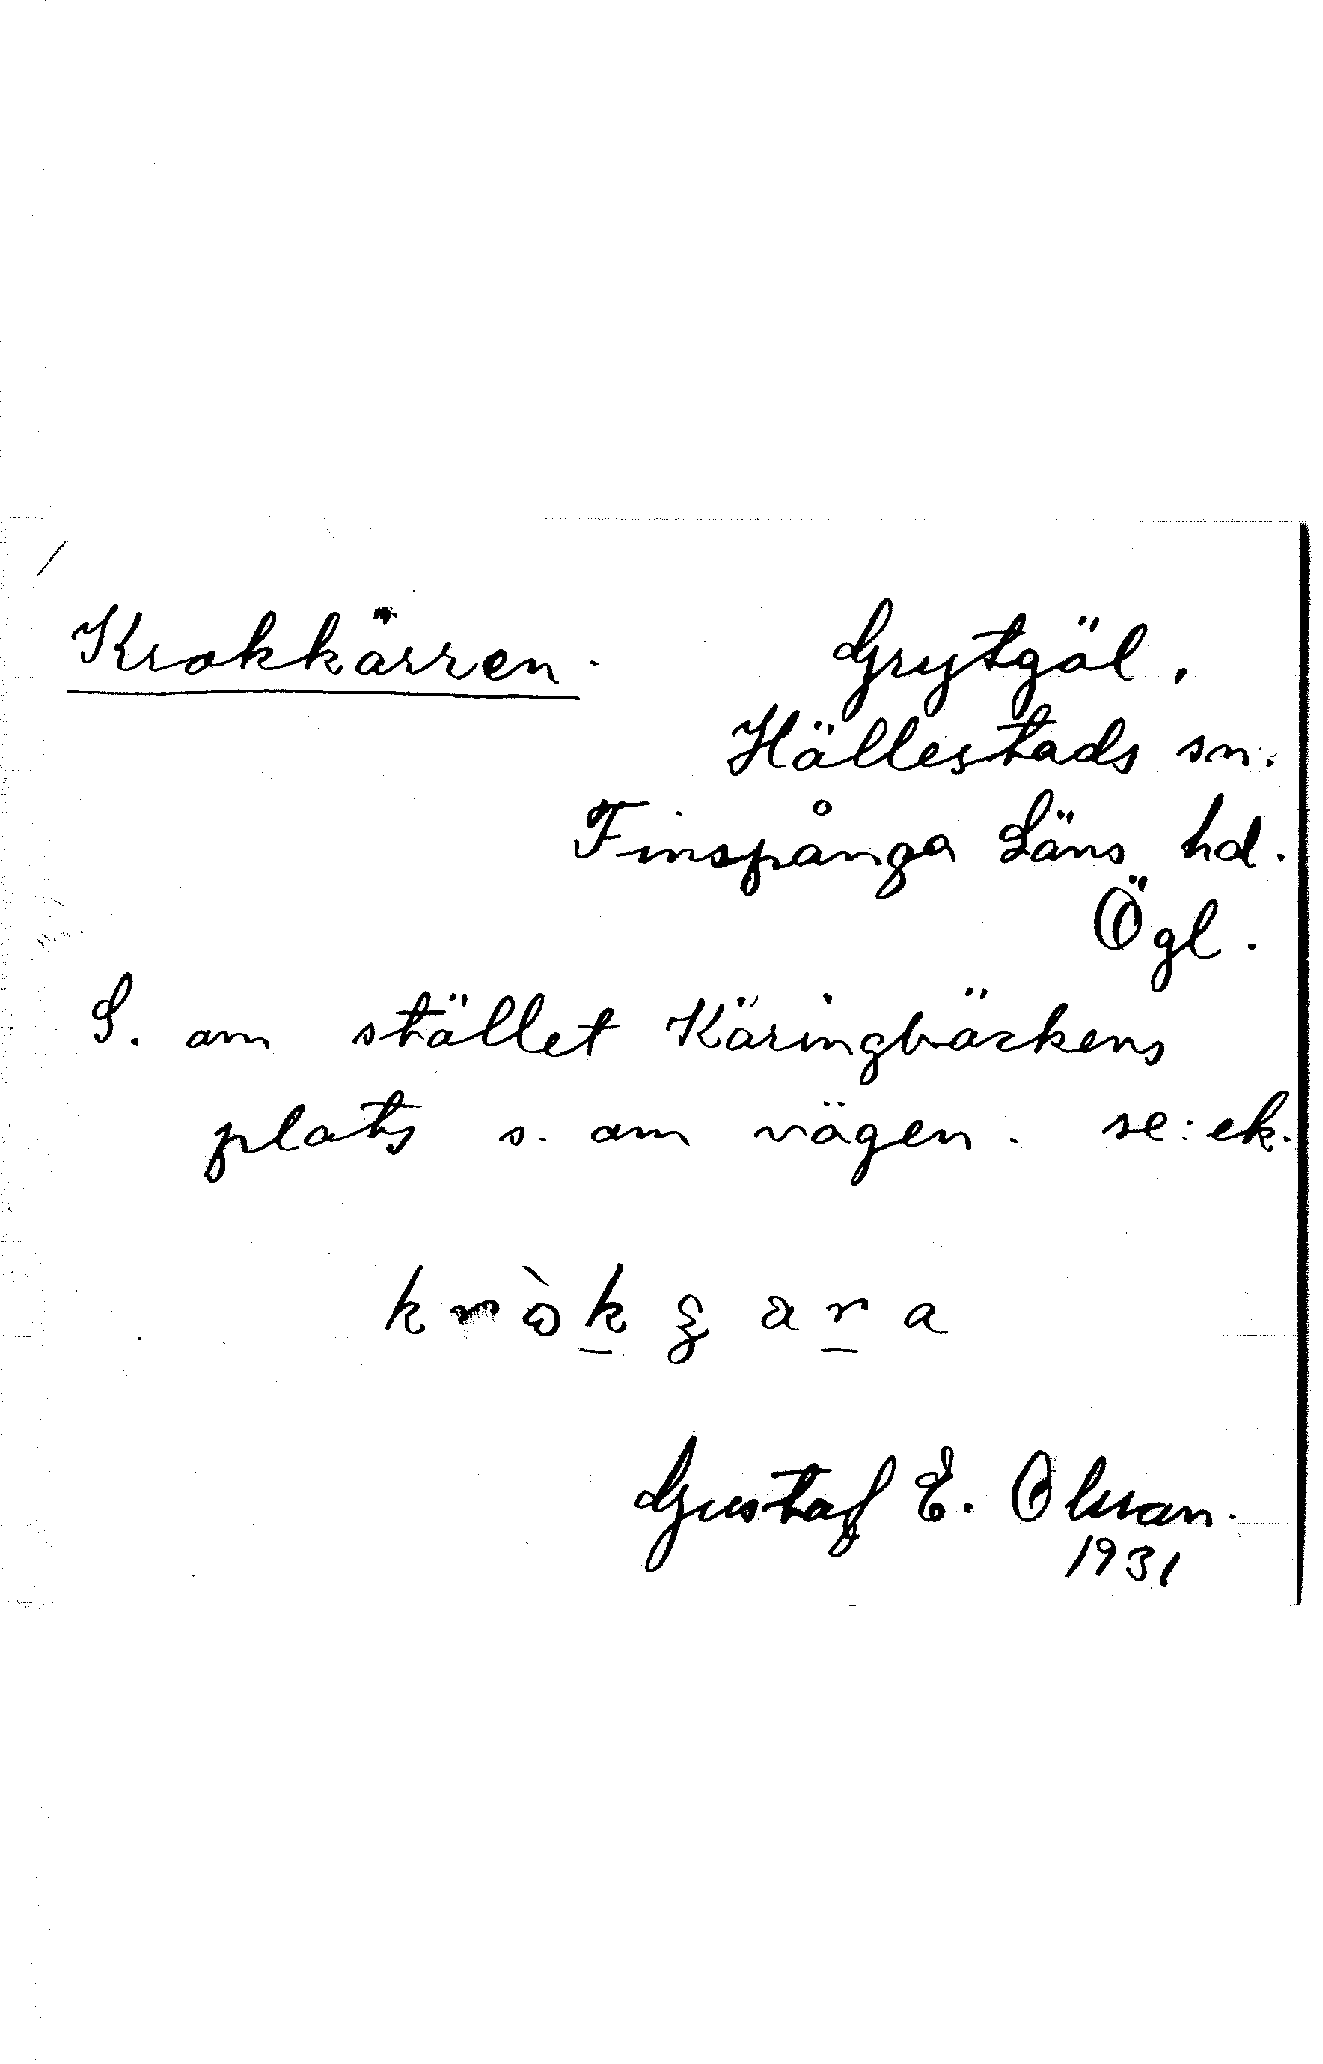 Krokkärren.
Grytgöl,
Hällestads sn.
Finspånga Läns hd.
Ögl.
S. om stället Käringbäckens
plats s. om vägen. se: ek.
Gustaf E. Olsson.
1931